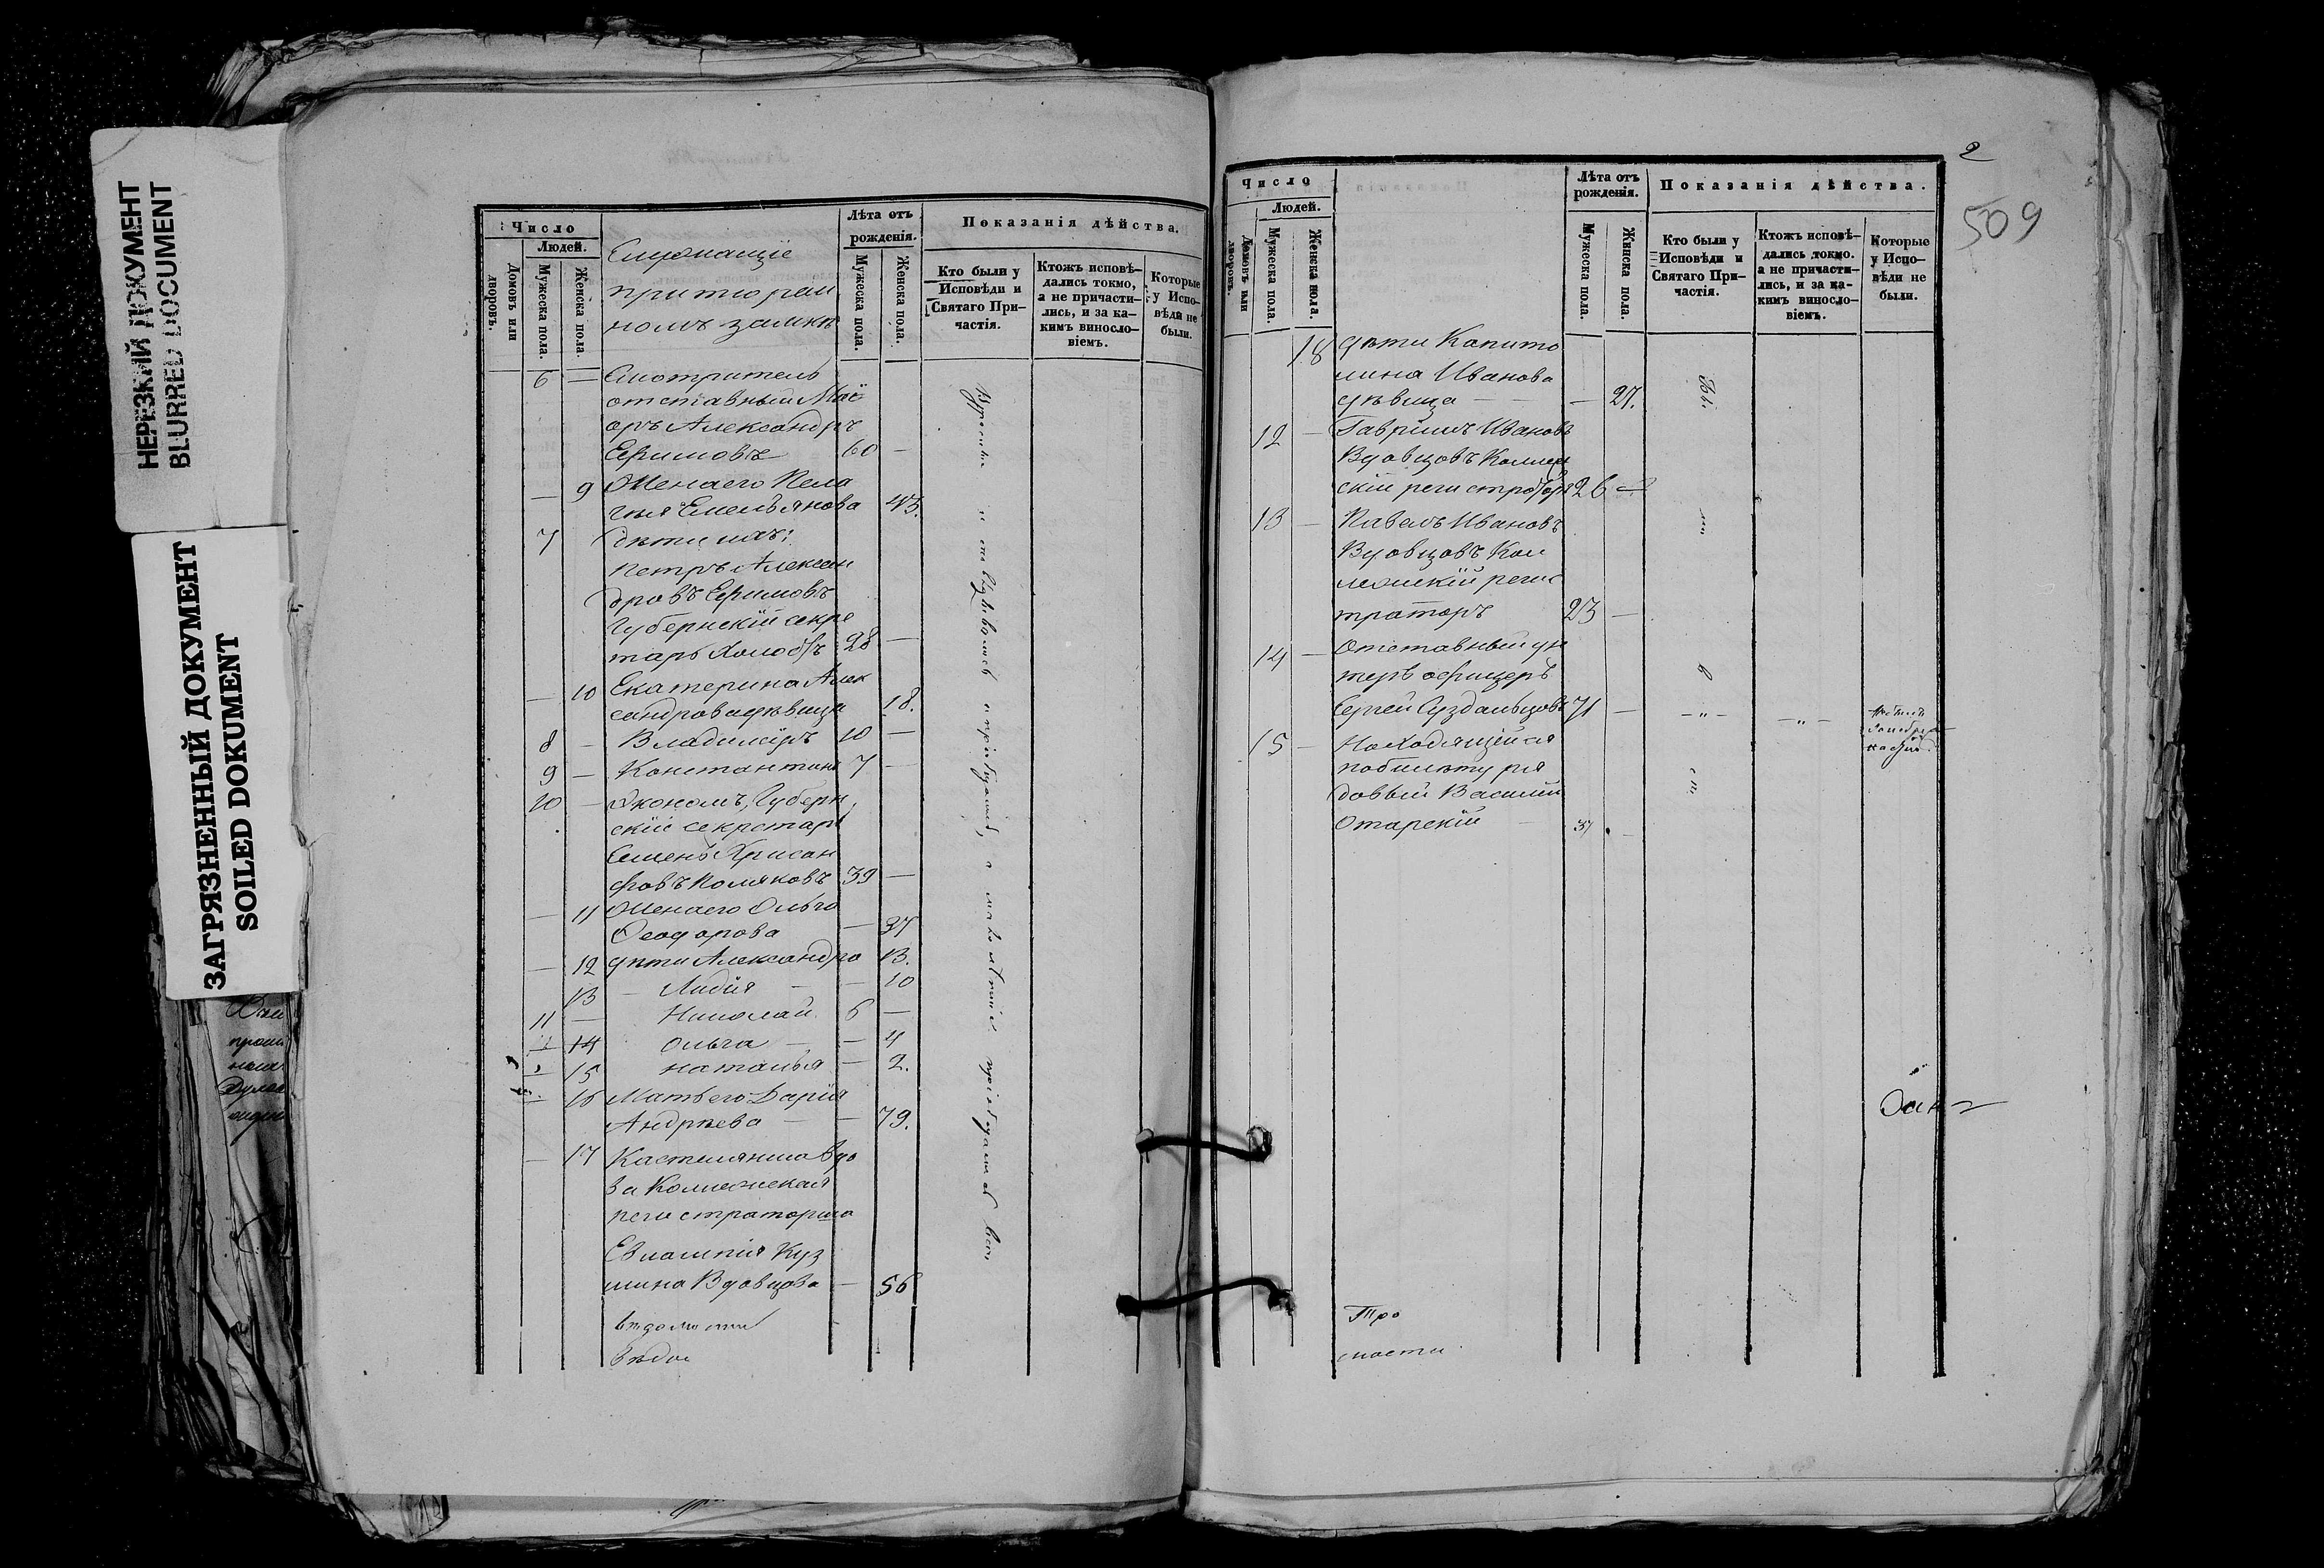 НЕРЕЗКИЙ ДОКУМЕНТ
BLURRED DOCUMENT
ЗАГРЯЗНЕННЫЙ ДОКУМЕНТ
SOILED DOKUMENT
Число
Людей.
Домовъ или дворовъ.
Мужеска пола.
Женска пола.
Служащіе
при тюрем
номъ замкѣ
Лѣта отъ
рожденія.
Мужеска пола.
Женска пола.
Показанія дѣйства.
Кто были у
Исповѣди и
Святаго При-
частія.
Ктожъ исповѣ-
дались токмо,
а не причасти-
лись, и за ка-
кимъ виносло-
віемъ.
Которые
у Испо-
вѣди не
были.
6 — Смотритель
отставный Маі
оръ Александръ
Ефимовъ 60 —
— 9 Жена его Пела
гья Емельянова 43.
7 дѣти ихъ:
Петръ Алексан
дровъ Ефимовъ
Губернскій секре
тарь Холостъ 28 —
— 10 Екатерина Алек
сандрова дѣвица 18.
8 — Владиміръ 10 —
9 — Константинъ 7 —
10 — Экономъ, Губерн
скій секретарь
Семенъ Хрисан
фовъ Поляковъ 39 —
— 11 Жена его Ольга
Феодорова — 37
— 12 дѣти Александра 13.
13 — Лидія — — 10
11 — Николай 6 —
14 Ольга — — 4
15 Наталья — 2.
16 Мать его Дарія
Андрѣева — — 79.
— 17 Кастелянша вдо
ва Коллежская
регистраторша
Евлампія Куз
мина Вдовцова — 56
вѣдомости
вѣдо
2
509
Число
Людей.
Домовъ или дворовъ.
Мужеска пола.
Женска пола.
Лѣта отъ
рожденія.
Мужеска пола.
Женска пола.
Показанія дѣйства.
Кто были у
Исповѣди и
Святаго При-
частія.
Ктожъ исповѣ-
дались токмо.
а не причасти-
лись, и за ка-
кимъ виносло-
віемъ.
Которые
у Испо-
вѣди не
были.
18 дѣти Капито
лина Иванова
дѣвица — — 27.
12 — Гавріилъ Ивановъ
Вдовцовъ Коллеж
скій регистраторъ 26 —
13 — Павелъ Ивановъ
Вдовцовъ Кол
лежскій регис
траторъ 23 —
14 — Отставный ун
теръ офицеръ
Сергей Суздальцовъ 71 — — „ — — „ —
15 — Находящійся
по билету ря
довый Василій
Отарскій — 37 —
Тро
ности